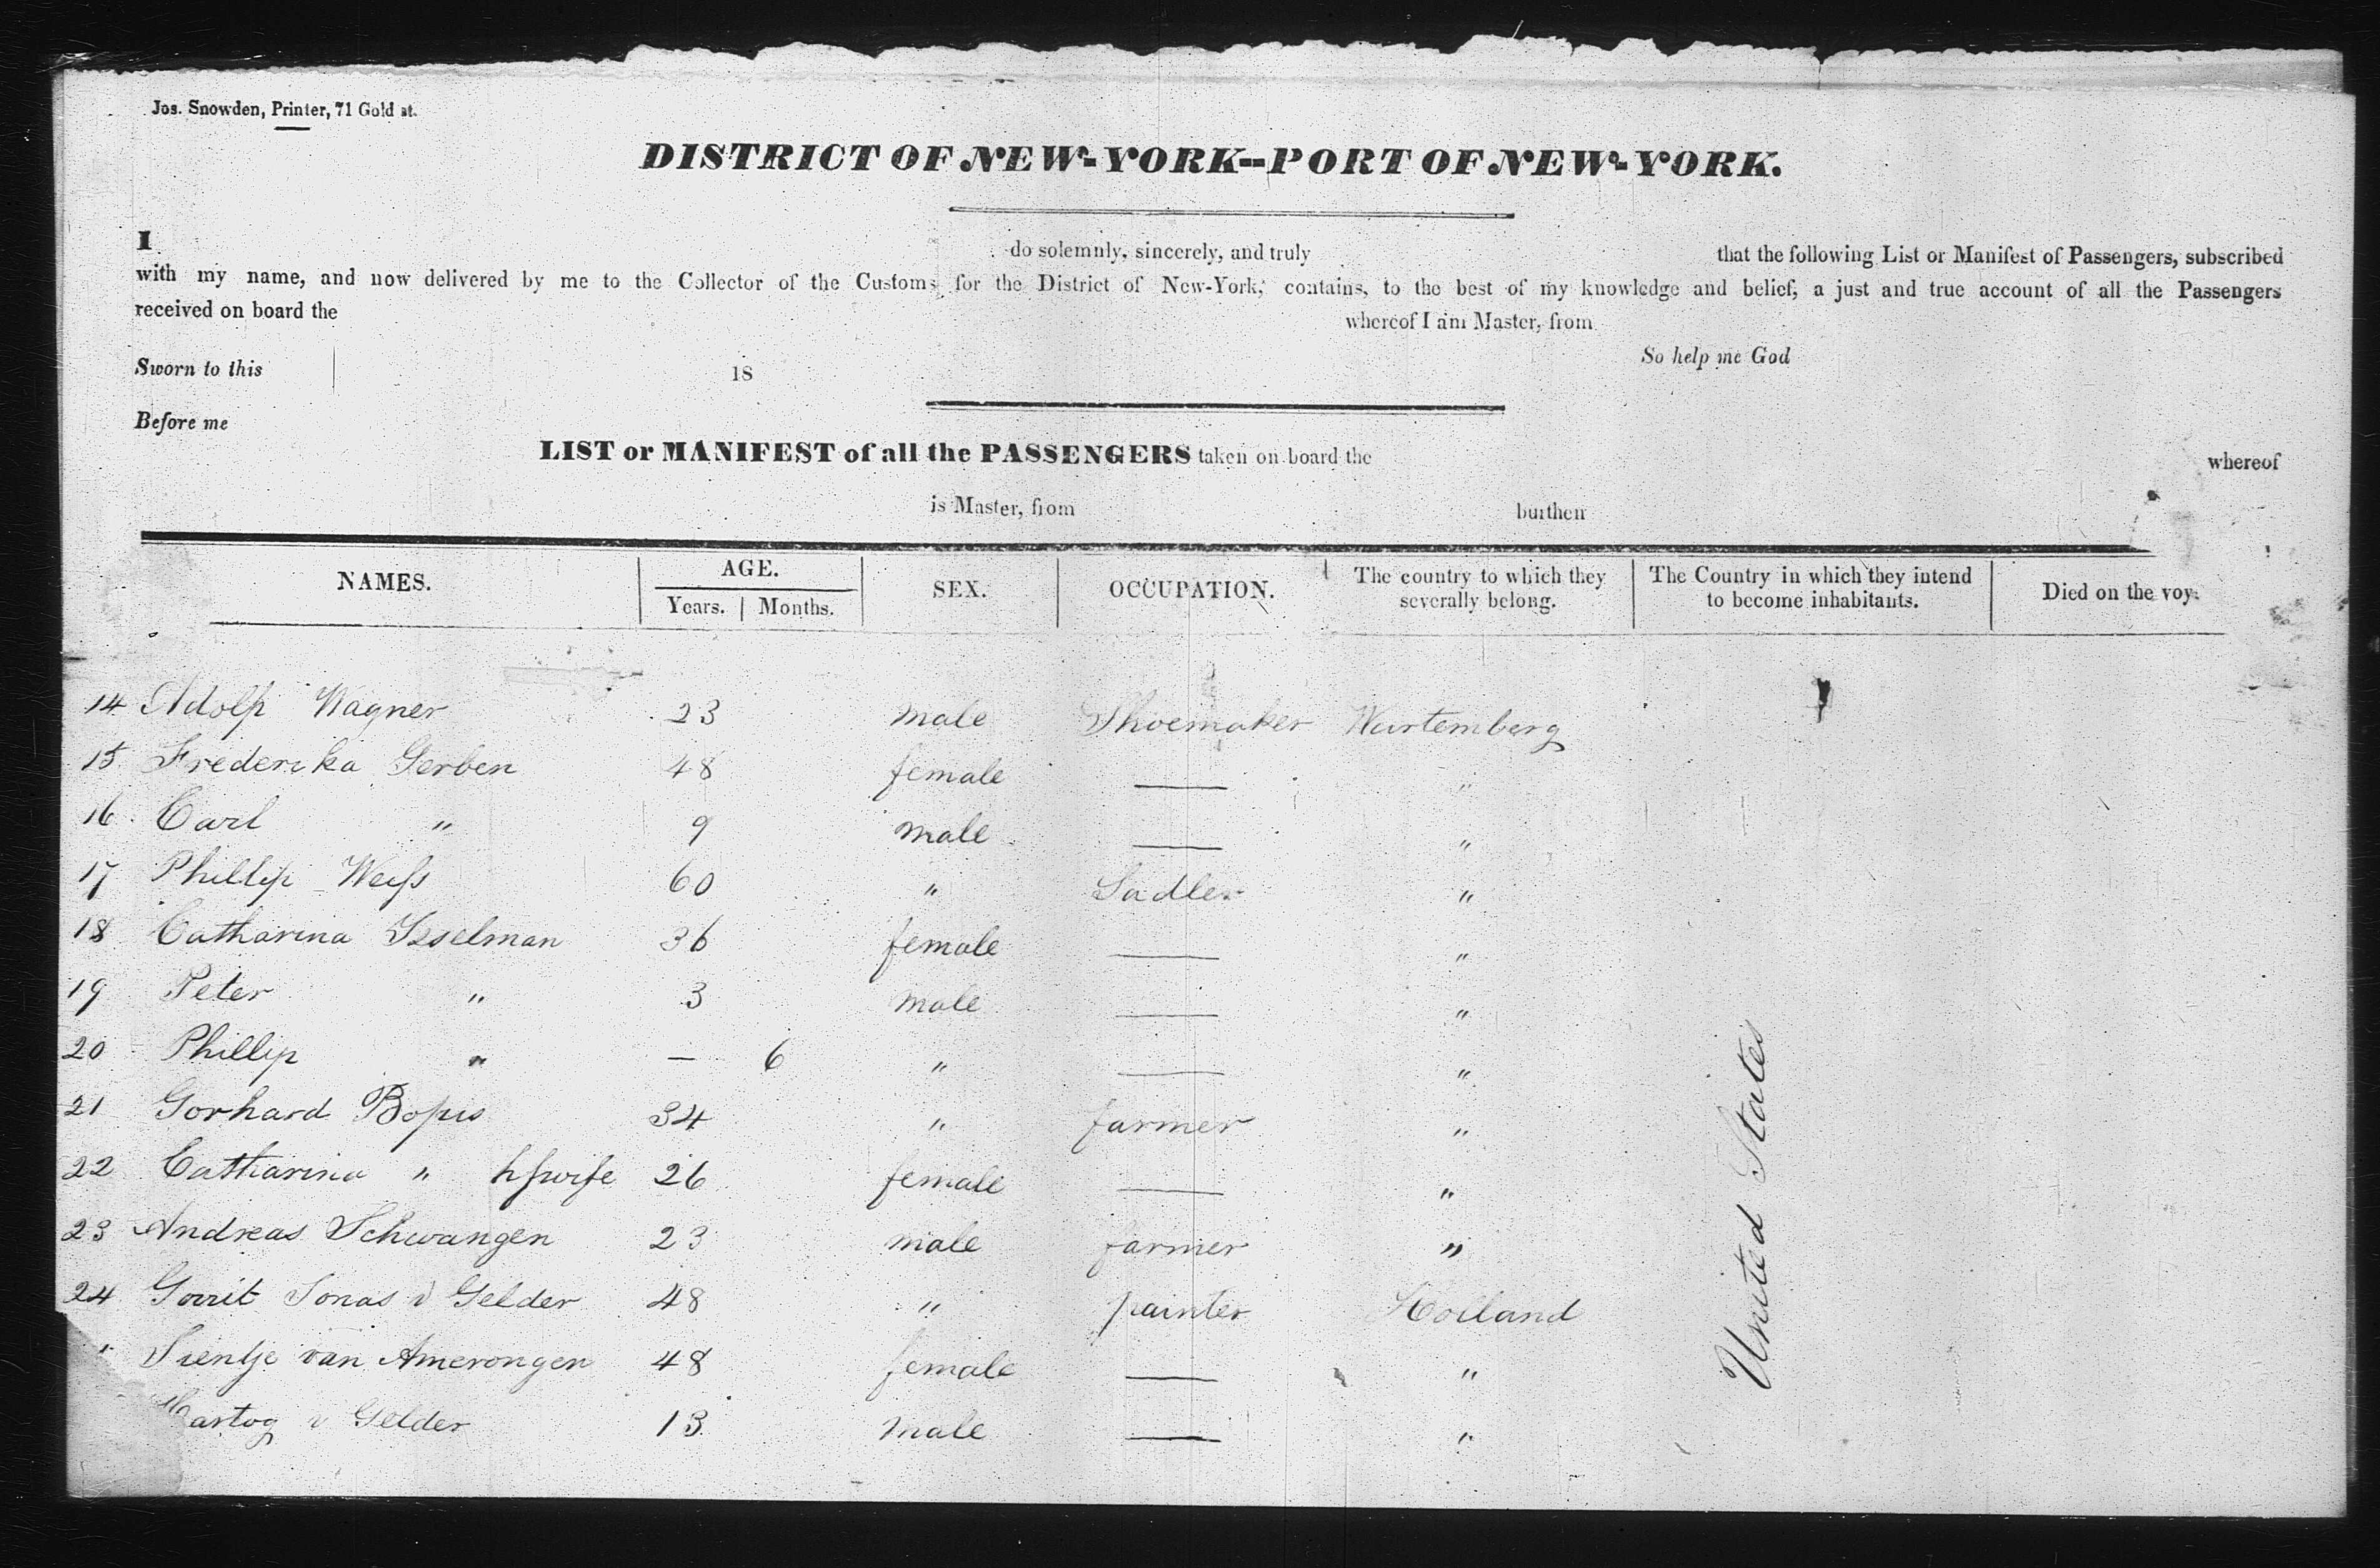 Jos. Snowden, Printer, 71 Gold st.
DISTRICT OF NEW-YORK--PORT OF NEW-YORK.
I do solemnly, sincerely, and truly that the following List or Manifest of Passengers, subscribed
with my name, and now delivered by me to the Collector of the Customs for the District of New-York, contains, to the best of my knowledge and belief, a just and true account of all the Passengers
received on board the whereof I am Master, from
So help me God
Sworn to this 18
Before me
LIST or MANIFEST of all the PASSENGERS taken on board the whereof
is Master, from burthen
NAMES. AGE. Years. Months. SEX. OCCUPATION. The country to which they severally belong. The Country in which they intend to become inhabitants. Died on the voy.
14 Adolph Wagner 23 male Shoemaker Wurtemberg
15 Frederika Gerben 48 female — "
16 Carl " 9 male — "
17 Phillip Weiss 60 " Sadler "
18 Catharina Isselman 36 female — "
19 Peter " 3 male — "
20 Phillip " — 6 " — "
21 Gorhard 34 " farmer "
22 Catharina " 26 female — "
23 Andreas Schwangen 23 male farmer "
24 Gerrit Jonas v Gelder 48 " painter Holland
" Sientje van Amerongen 48 female — "
Hartog v Gelder 13 male — "
United States